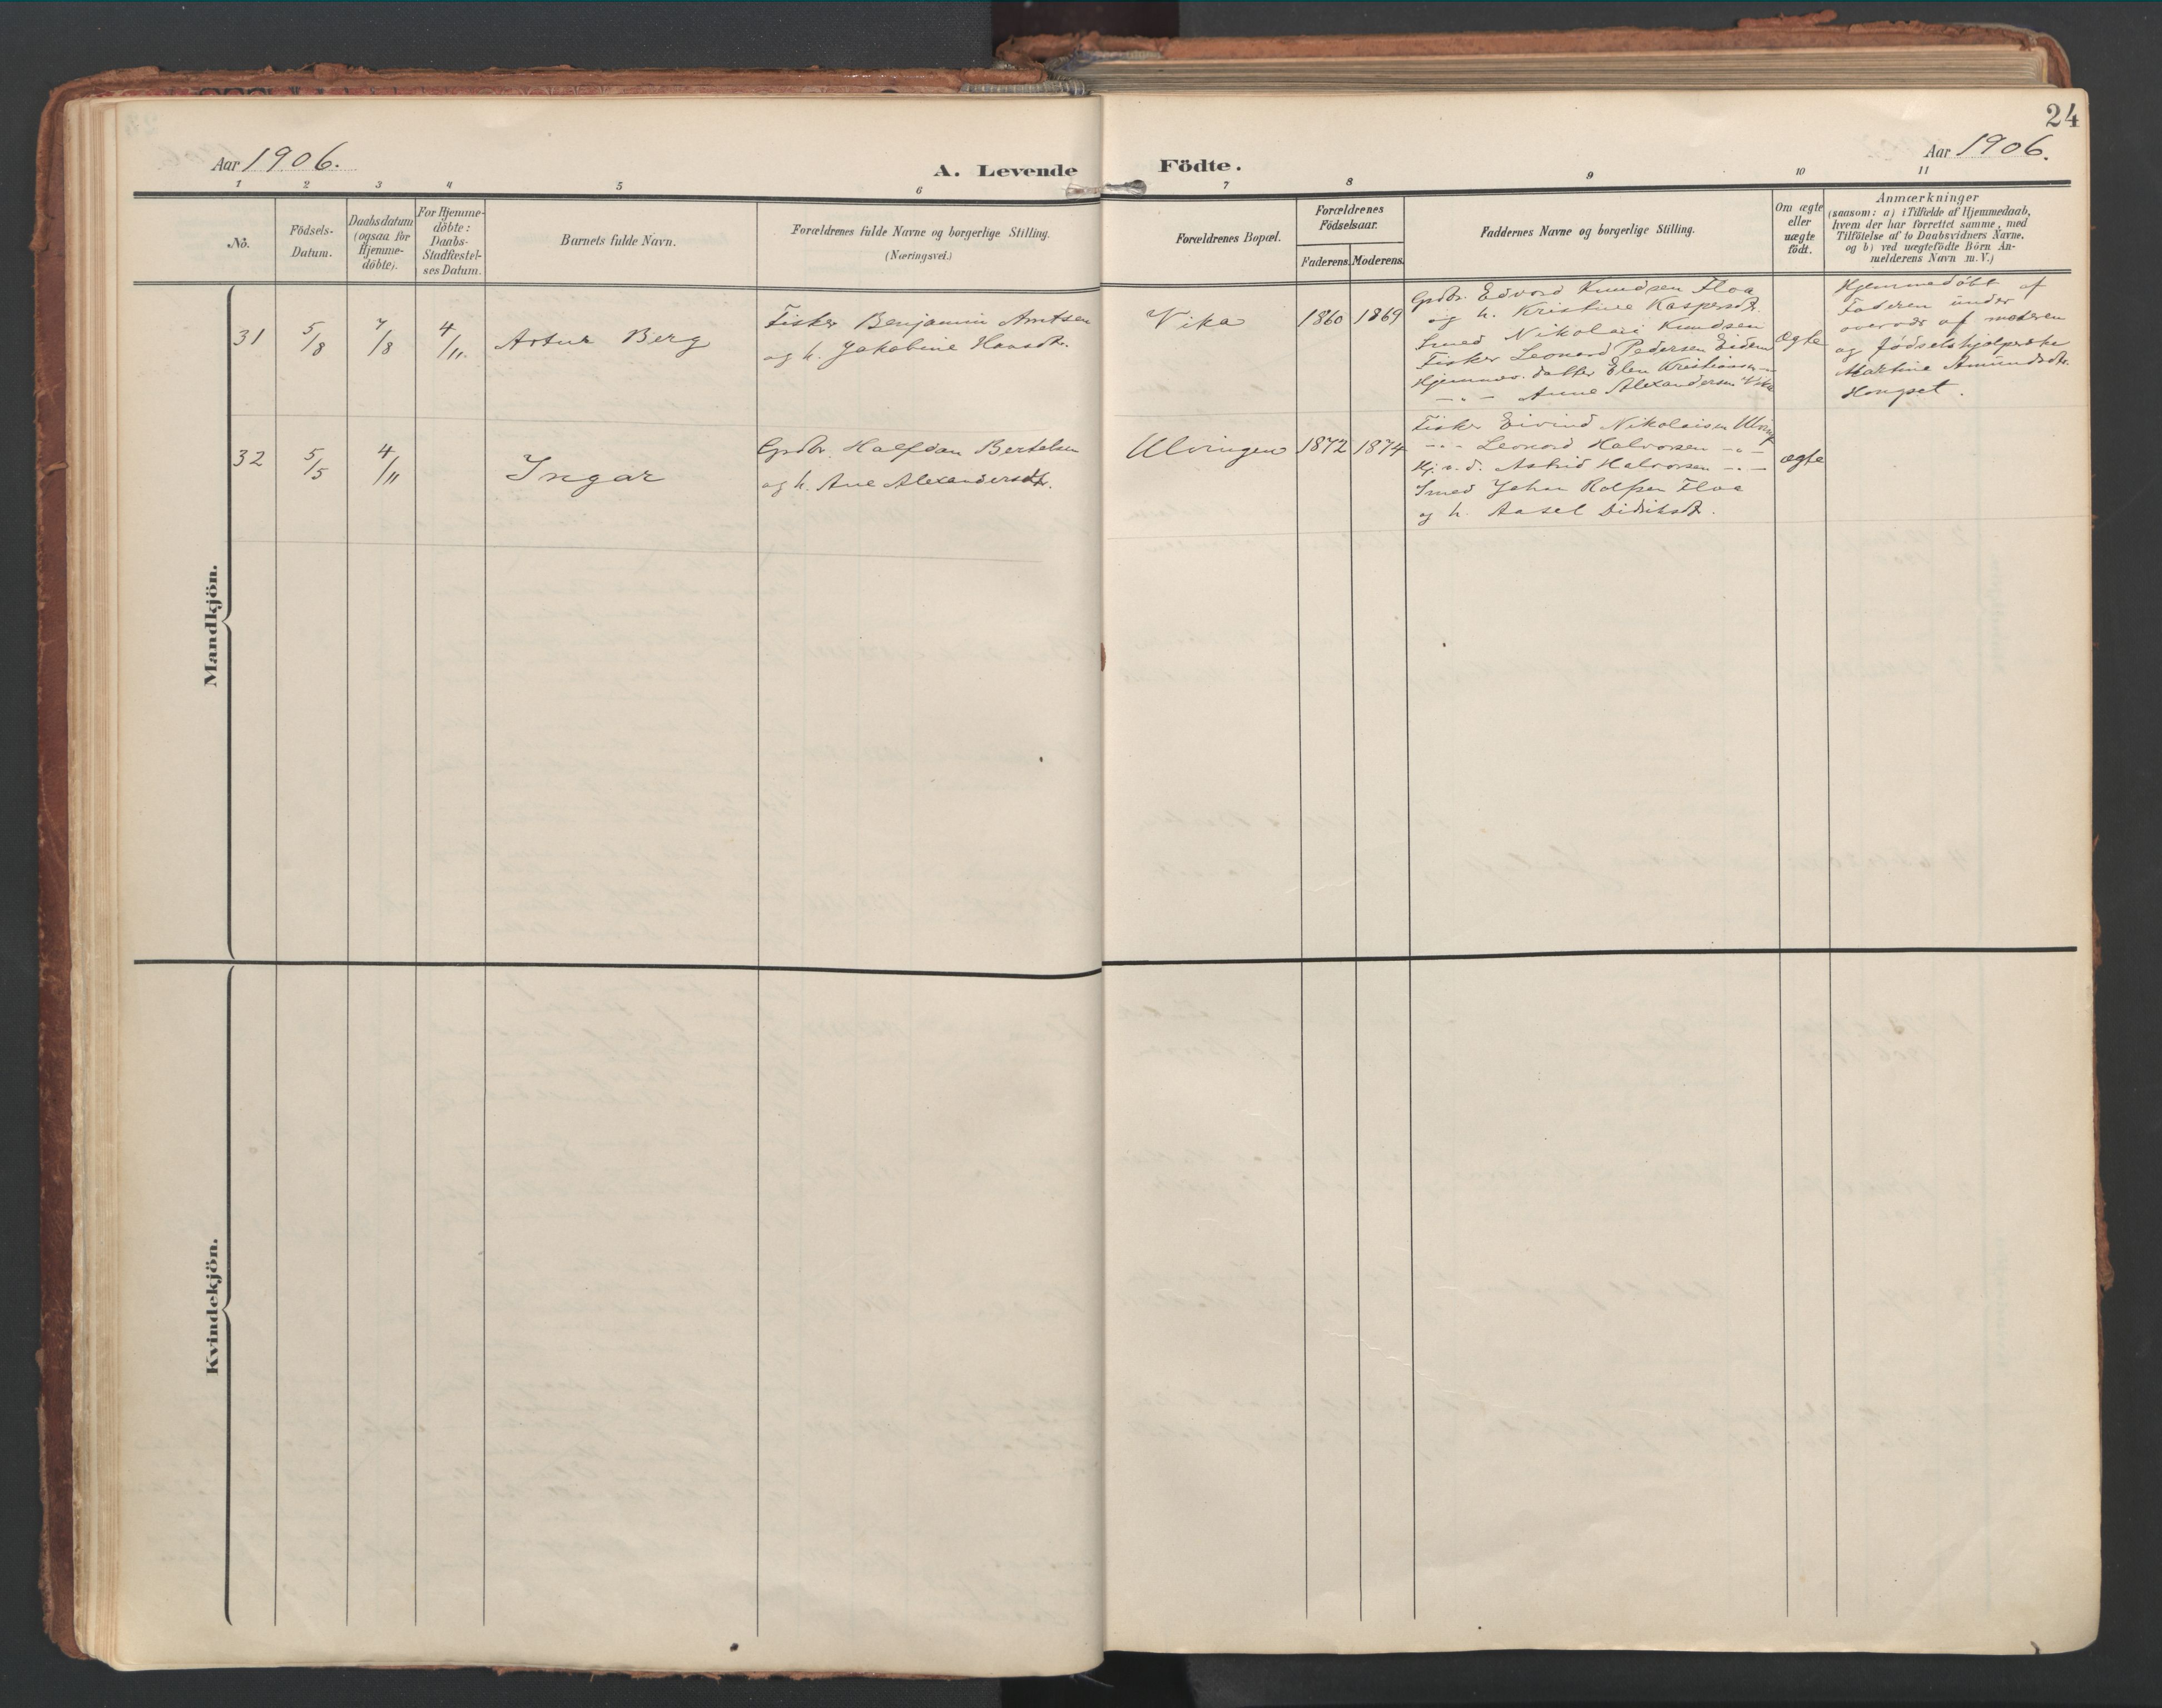 24
Aar 1906.
A. Levende Födte.
Aar 1906.
1 2 3 4 5 6 7 8 9 10 11
No.
Födsels-
Datum.
Daabsdatum
(ogsaa for
Hjemme-
döbte).
For Hjemme-
döbte:
Daabs-
Stadfæstel-
ses Datum.
Barnets fulde Navn.
Forældrenes fulde Navne og borgerlige Stilling.
(Næringsvei.)
Forældrenes Bopæl.
Forældrenes
Födselsaar.
Faderens. Moderens.
Faddernes Navne og borgerlige Stilling.
Om ægte
eller
uægte
födt.
Anmærkninger
(saasom: a) i Tilfælde af Hjemmedaab,
hvem der har forrettet samme, med
Tilföielse af to Daabsvidners Navne,
og b) ved uægtefödte Börn An-
melderens Navn m. V.)
Mandkjön.
31
5/8
7/8
4/11.
Artur Berg
Fisker Benjamin Arntsen
og h. Jakobine Hansdtr.
Vika
1860 1869
Grdbr. Edvard Knudsen Floa
og h. Kristine Kaspersdtr.
Smed Nikolai Knudsen
Fisker Leonard Pedersen Eidem
Hjemmev. datter Elen Kristiansen
— " — Anne Alexandersen Vika
Ægte
Hjemmedøbt af
Faderen under
overvær af moderen
og fødselshjælperske
Martine Amundsdtr.
32
5/5
4/11
Ingar
Grdbr. Halfdan Bertelsen
og h. Ane Alexandersdtr.
Ulvingen
1872 1874
Fisker Eivind Nikolaisen
— " — Leonard Halvorsen — " —
Hj. v. d. Astrid Halvorsen — " —
Smed Johan Rolfsen Floa
og h. Aasel Didriksdtr.
ægte
Kvindekjön.